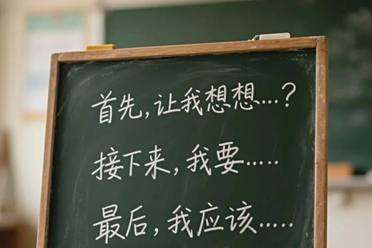 首先，让我想想...？
接下来，我要.....
最后，我应该.....